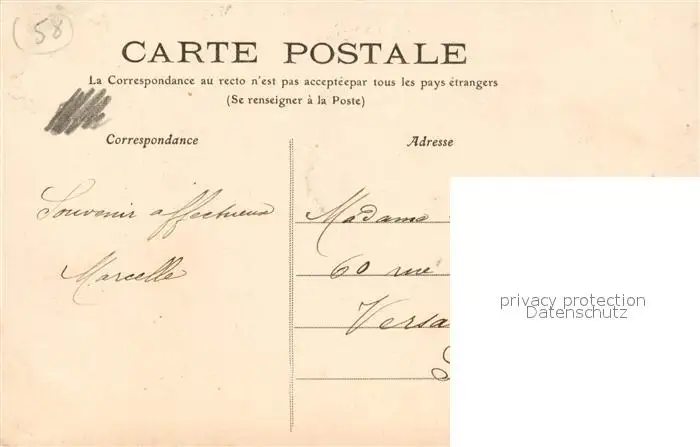 (58)
CARTE POSTALE
La Correspondance au recto n'est pas acceptéepar tous les pays étrangers
(Se renseigner à la Poste)
Correspondance
Adresse
Souvenir affectueux
Marcelle
Madame
60 rue
Versa
privacy protection
Datenschutz